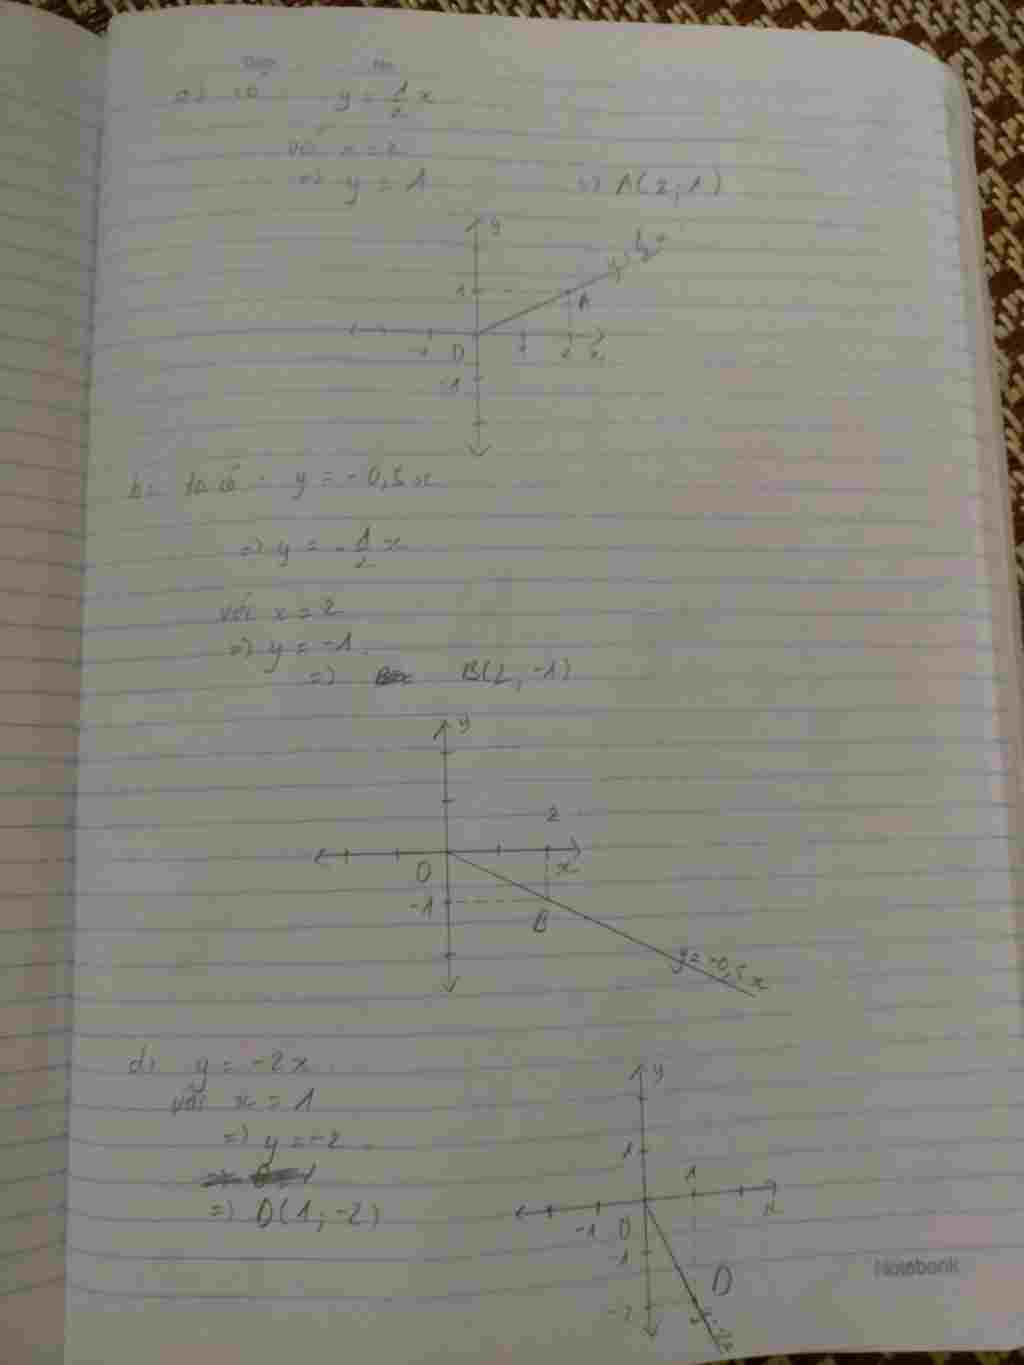 Date No.
a) có y = 1/2 x
với x = 2
=> y = 1 => A(2;1)
y
y = 1/2 x
1
A
-1 O 1 2 x
-1
b) ta có y = -0,5x
=> y = -1/2 x
với x = 2
=> y = -1
=> B(2; -1)
y
2
O x
-1
B
y = -0,5x
d) y = -2x
với x = 1
=> y = -2
=> D(1; -2)
y
1
1
x
-1 O
-1
D
-2
Notebook